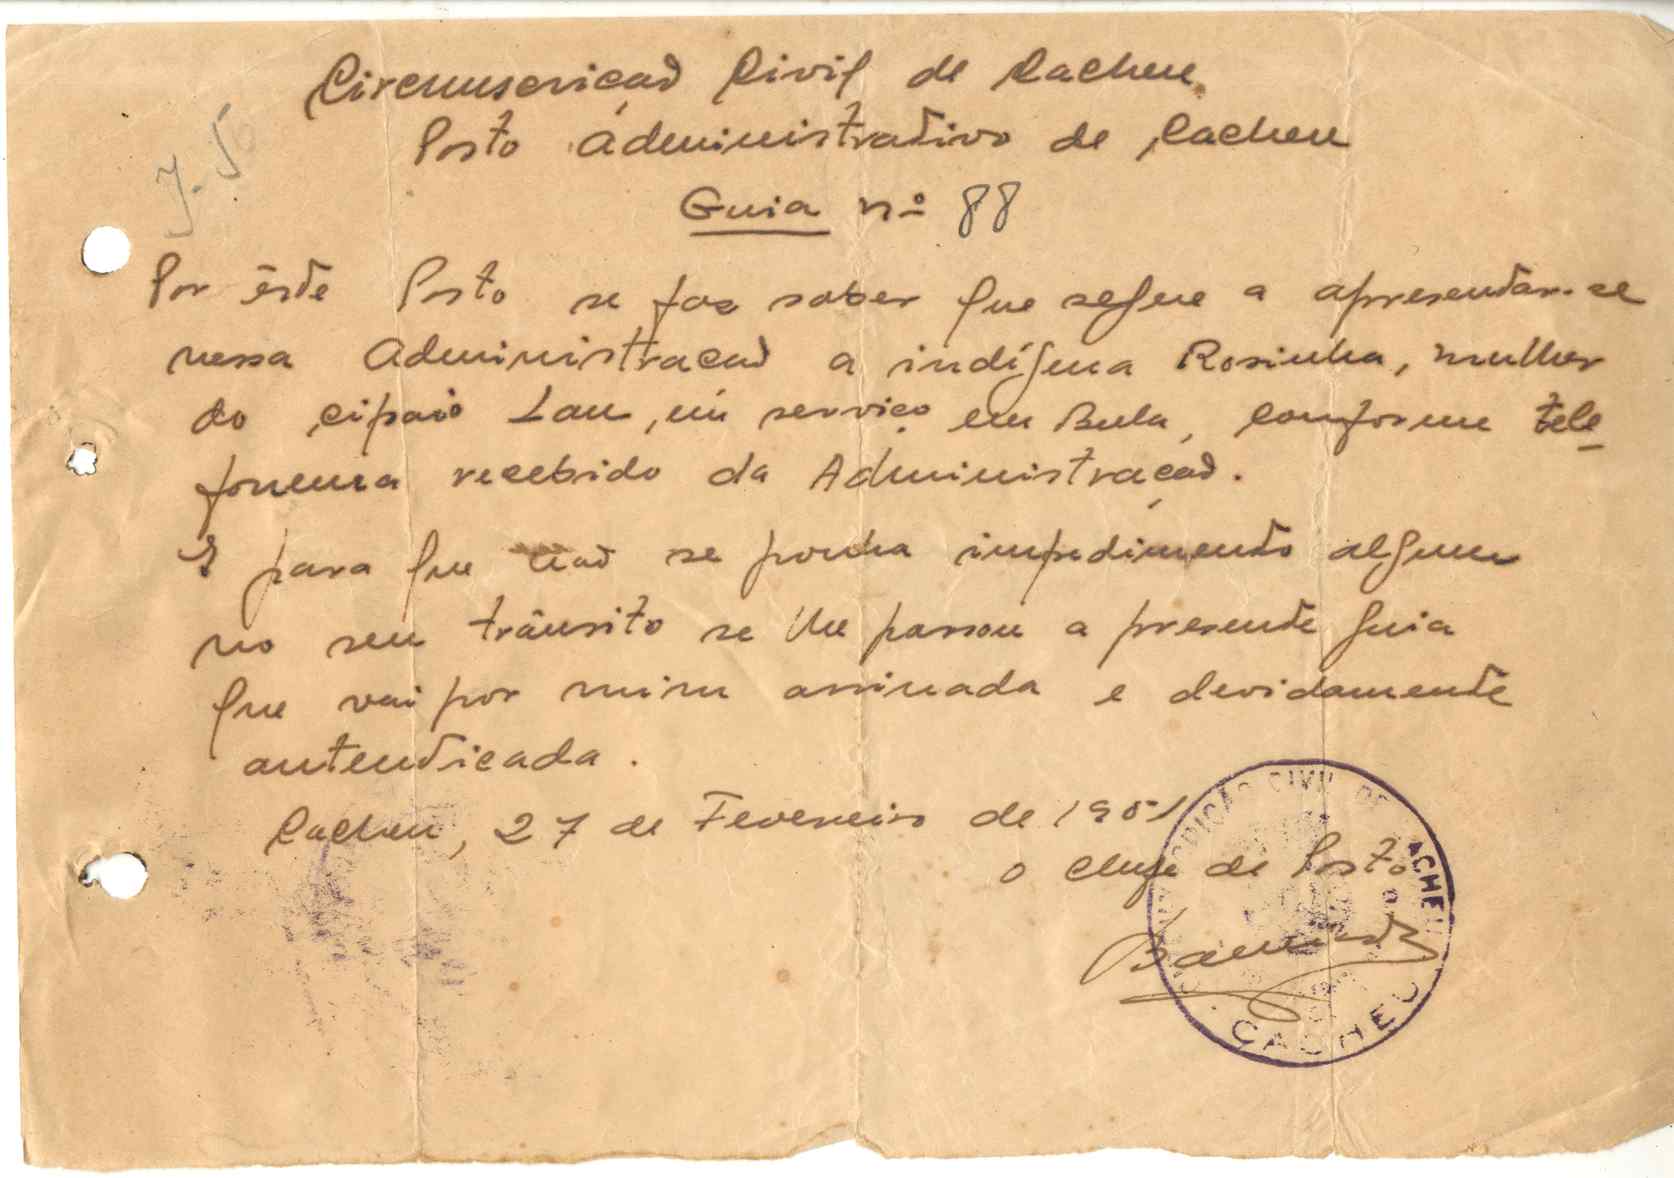 Circunscrição Civil de Cacheu
Posto Administrativo de Cacheu
Guia nº 88
Por êste Posto se faz saber que segue a apresentar-se
nessa Administração a indígena Rosinha, mulher
do cipaio Lau, em serviço em Bula, conforme tele
fonema recebido da Administração.
E para que não se ponha impedimento algum
no seu trânsito se lhe passou a presente guia
que vai por mim assinada e devidamente
autenticada.
Cacheu, 27 de Fevereiro de 1951
O Chefe de Posto
CIVIL DE CACHEU
CACHEU